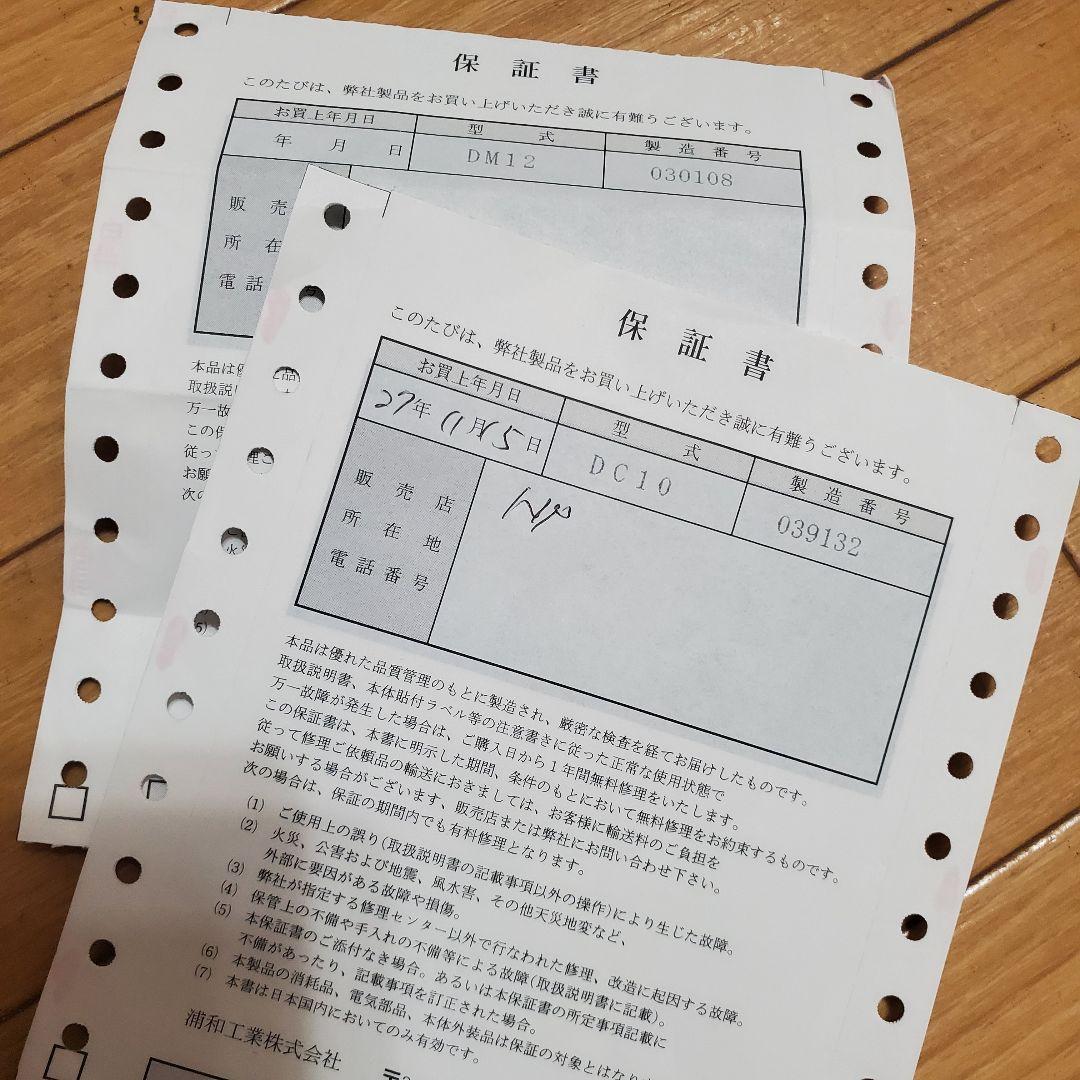 保証書
このたびは、弊社製品をお買い上げいただき誠に有難うございます。
お買上年月日 型式 製造番号
年 月 日 DM12 030108
販売
所在
電話
本品は優
取扱説
万一故
この保
従っ
お願
次の
保証書
このたびは、弊社製品をお買い上げいただき誠に有難うございます。
お買上年月日 型式 製造番号
27年11月15日 DC10 039132
販売店
所在地
電話番号
本品は優れた品質管理のもとに製造され、厳密な検査を経てお届けしたものです。
取扱説明書、本体貼付ラベル等の注意書きに従った正常な使用状態で
万一故障が発生した場合は、ご購入日から1年間無料修理をいたします。
この保証書は、本書に明示した期間、条件のもとにおいて無料修理をお約束するものです。
従って修理ご依頼品の輸送におきましては、お客様に輸送料のご負担を
お願いする場合がございます、販売店または弊社にお問い合わせ下さい。
次の場合は、保証の期間内でも有料修理となります。
(1) ご使用上の誤り(取扱説明書の記載事項以外の操作)により生じた故障。
(2) 火災、公害および地震、風水害、その他天災地変など、
外部に要因がある故障や損傷。
(3) 弊社が指定する修理センター以外で行なわれた修理、改造に起因する故障。
(4) 保管上の不備や手入れの不備等による故障(取扱説明書に記載)。
(5) 本保証書のご添付なき場合。あるいは本保証書の所定事項記載に
不備があったり、記載事項を訂正された場合。
(6) 本製品の消耗品、電気部品、本体外装品は保証の対象とはな
(7) 本書は日本国内においてのみ有効です。
浦和工業株式会社